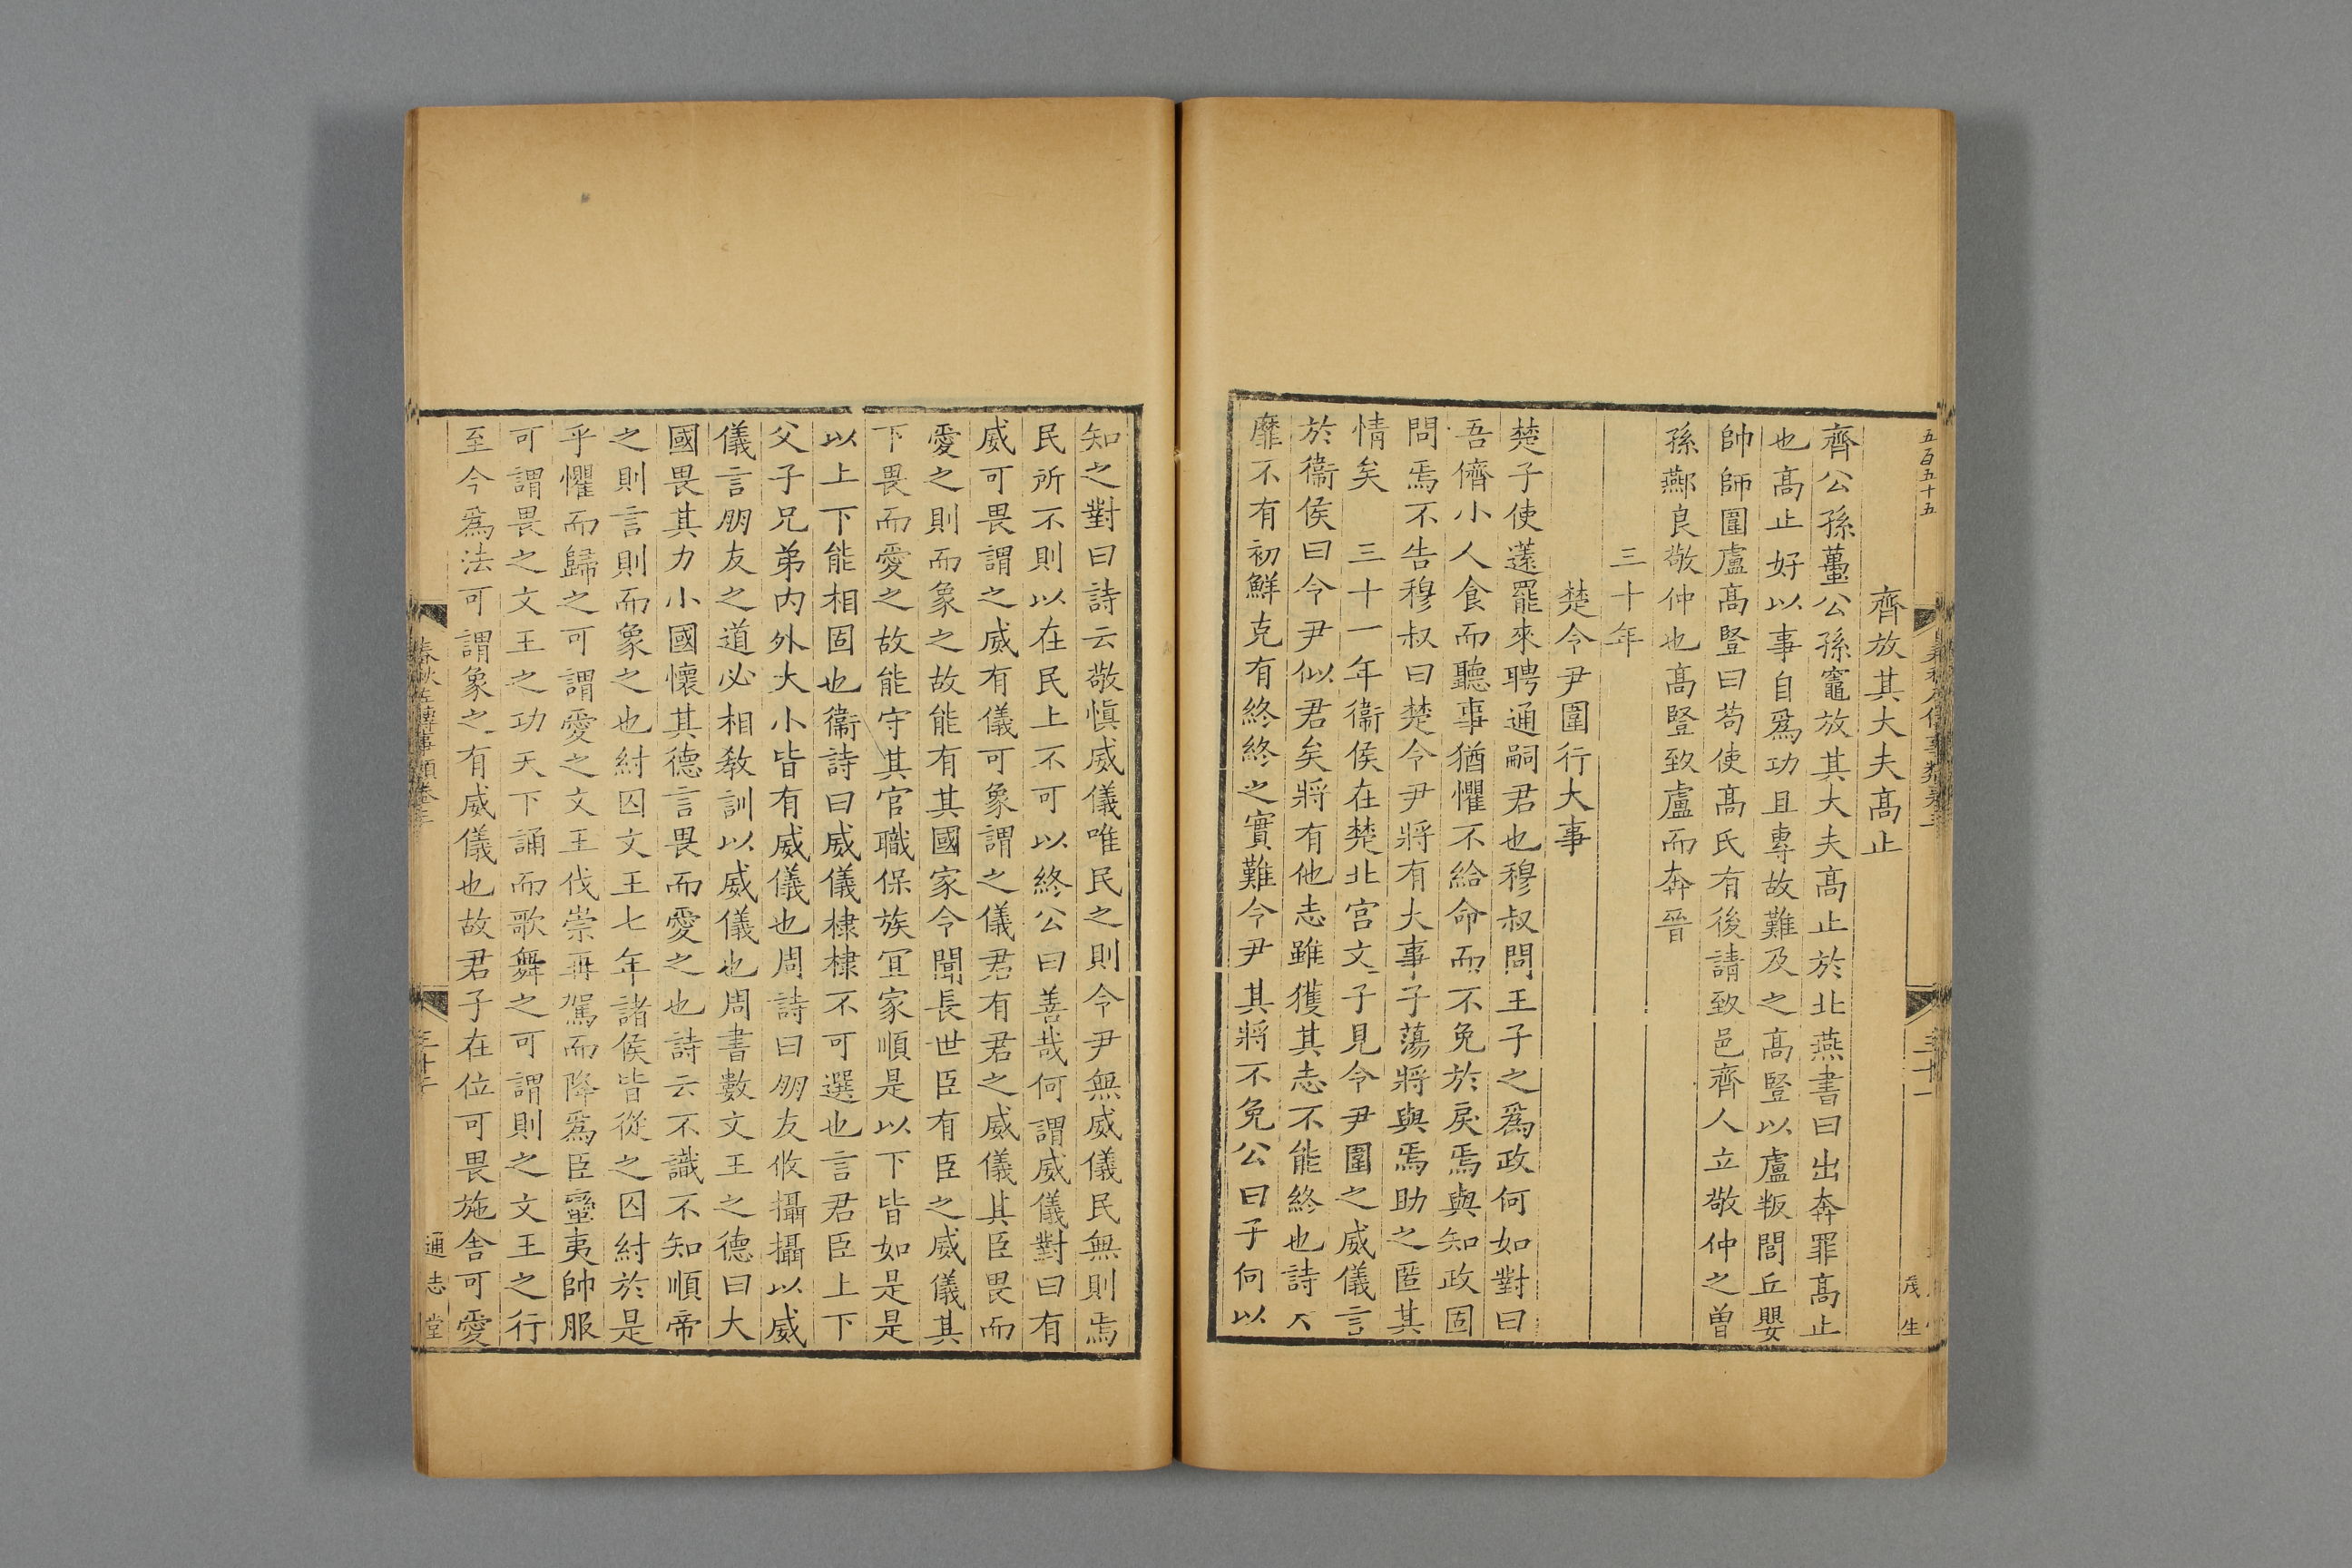 五百五十五
茂生
齊放其大夫高止
齊公孫蠆公孫竈放其大夫高止於北燕書曰出奔罪高止
也高止好以事自爲功且專故難及之高豎以盧叛閭丘嬰
帥師圍盧高豎曰苟使高氏有後請致邑齊人立敬仲之曾
孫酀良敬仲也高豎致盧而奔晉
三十年
楚令尹圍行大事
楚子使薳罷來聘通嗣君也穆叔問王子之爲政何如對曰
吾儕小人食而聽事猶懼不給命而不免於戾焉與知政固
問焉不告穆叔曰楚令尹將有大事子蕩將與焉助之匿其
情矣 三十一年衞侯在楚北宮文子見令尹圍之威儀言
於衞侯曰令尹似君矣將有他志雖獲其志不能終也詩
靡不有初鮮克有終終之實難令尹其將不免公曰子何以
知之對曰詩云敬愼威儀唯民之則令尹無威儀民無則焉
民所不則以在民上不可以終公曰善哉何謂威儀對曰有
威可畏謂之威有儀可象謂之儀君有君之威儀其臣畏而
愛之則而象之故能有其國家令聞長世臣有臣之威儀其
下畏而愛之故能守其官職保族宜家順是以下皆如是是
以上下能相固也衞詩曰威儀棣棣不可選也言君臣上下
父子兄弟內外大小皆有威儀也周詩曰朋友攸攝攝以威
儀言朋友之道必相敎訓以威儀也周書數文王之德曰大
國畏其力小國懷其德言畏而愛之也詩云不識不知順帝
之則言則而象之也紂囚文王七年諸侯皆從之囚紂於是
乎懼而歸之可謂愛之文王伐崇再駕而降爲臣蠻夷帥服
可謂畏之文王之功天下誦而歌舞之可謂則之文王之行
至今爲法可謂象之有威儀也故君子在位可畏施舍可愛
春秋左傳事類卷三
通志堂